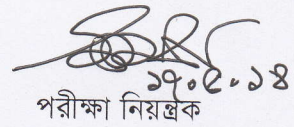 ১৭.৫.১৪
পরীক্ষা নিয়ন্ত্রক